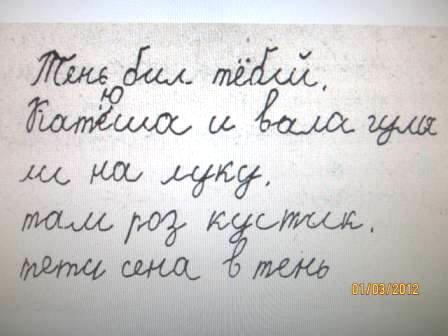 Тене бил тёбий.
Катёша и вала гуля
ли на луку.
там роз кустик.
тети сена в тень
01/03/2012